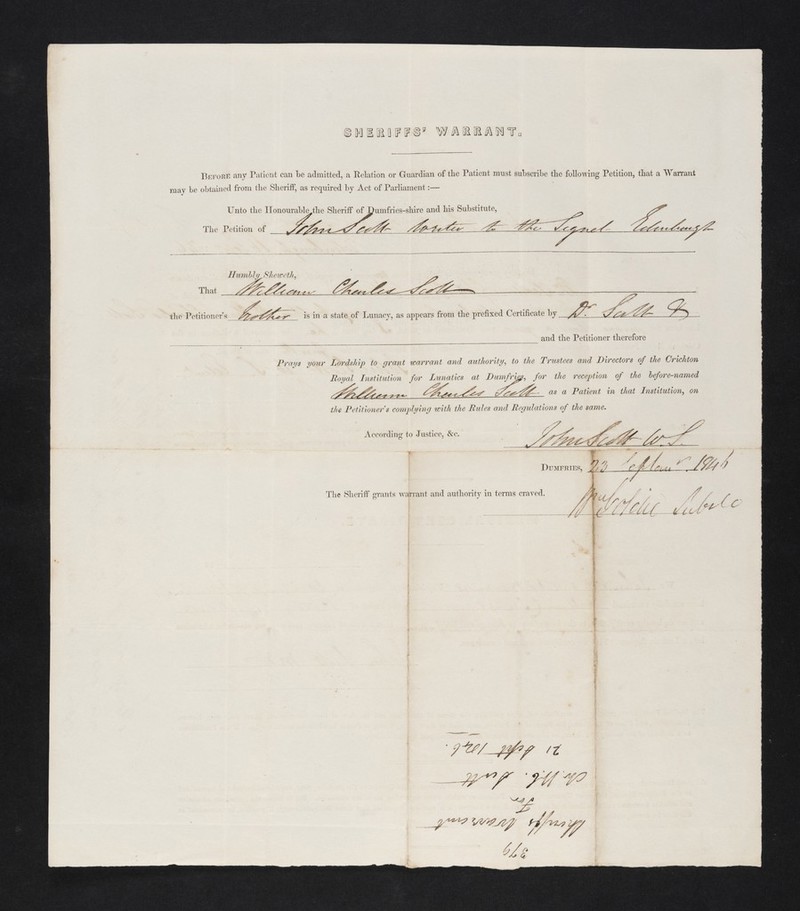 SHERIFFS' WARRANT.
BEFORE any Patient can be admitted, a Relation or Guardian of the Patient must subscribe the following Petition, that a Warrant
may be obtained from the Sheriff, as required by Act of Parliament :—
Unto the Honourable the Sheriff of Dumfries-shire and his Substitute,
The Petition of John Scott Writer to the Signet Edinburgh
Humbly Sheweth,
That William Charles Scott
the Petitioner's brother is in a state of Lunacy, as appears from the prefixed Certificate by Dr. Scott &
and the Petitioner therefore
Prays your Lordship to grant warrant and authority, to the Trustees and Directors of the Crichton
Royal Institution for Lunatics at Dumfries, for the reception of the before-named
William Charles Scott as a Patient in that Institution, on
the Petitioner's complying with the Rules and Regulations of the same.
According to Justice, &c.
John Scott W.S.
DUMFRIES, 23 Septemr. 1846
The Sheriff grants warrant and authority in terms craved.
Goldie Subste
379
Sheriffs Warrant
For
W. C. Scott
21 Sept 1846.